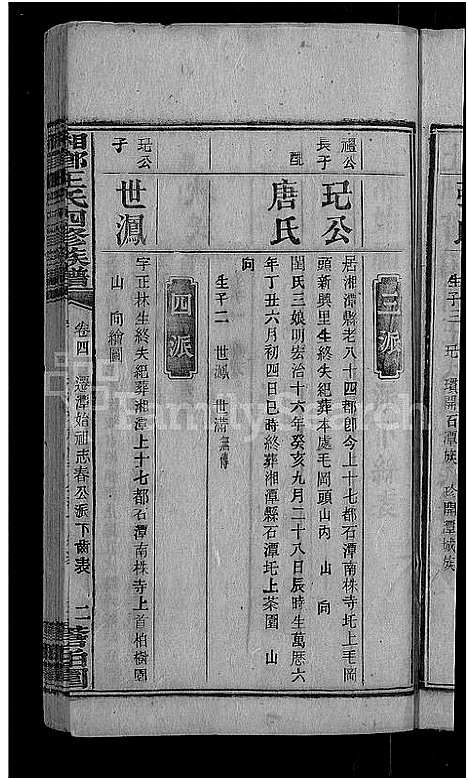 生子三 玘 瓚開石潭族 珍開潭城族
三派
禮公
長子
玘公
居湘潭縣老八十四都卽今上十七都石潭南株寺圫上毛岡
頭新興里生終失紀葬本處毛岡頭山內 山 向
配
唐氏
閨氏三娘明宏治十六年癸亥九月二十八日辰時生萬厯六
年丁丑六月初四日巳時終葬湘潭縣石潭圫上茶園 山
向
生子二 世鳳 世清無傳
四派
玘公
子
世鳳
字正林生終失紀葬湘潭上十七都石潭南株寺上首柏樹園
山 向繪圖
湘鄉王氏四修族譜
卷四 遷潭始祖志春公派下齒表
二
FamilySearch